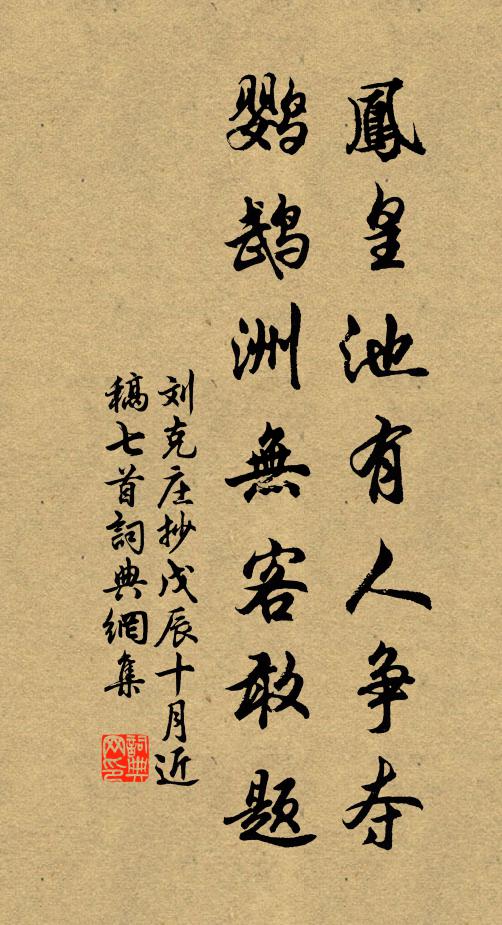 鳳皇池有人争夺
鹦鹉洲無客敢题
刘克庄抄戊辰十月近
稿七首詞典網集
詞典
网印